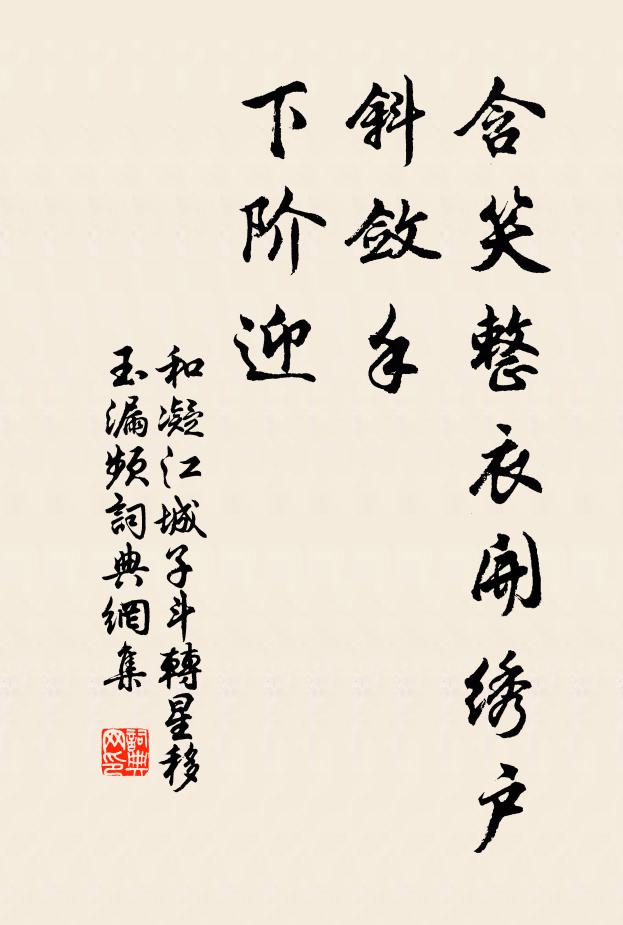 含笑整衣开绣户
斜敛手
下阶迎
和凝江城子斗轉星移
玉漏频詞典網集
詞典
网印